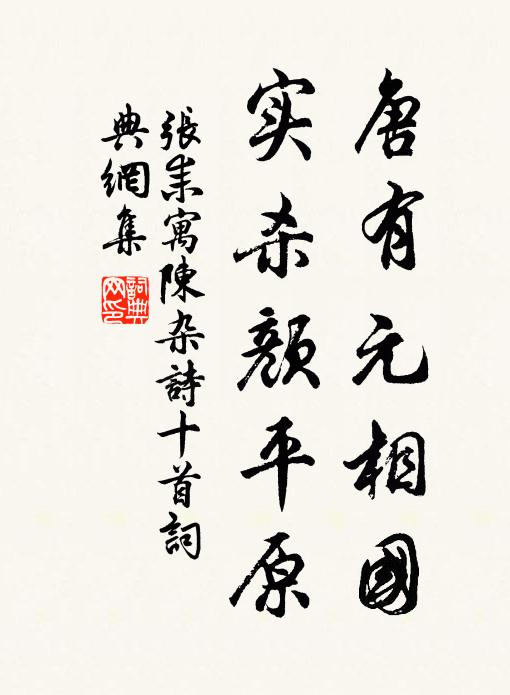 唐有元相國
实杀颜平原
張耒寓陳杂詩十首詞
典網集
詞典
网印